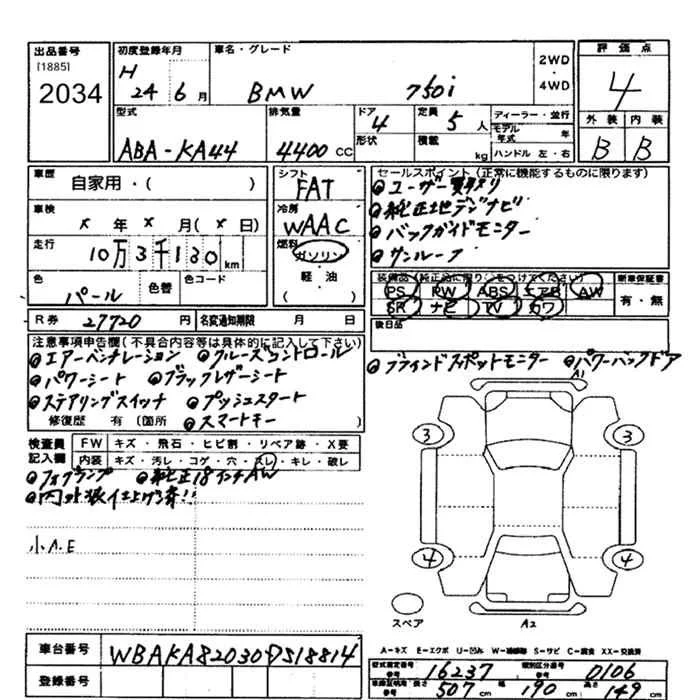 出品番号 初度登録年月 車名・グレード 評価点
[1885] H 2WD
2034 24 6月 BMW 750i 4WD 4
型式 排気量 ドア 定員 ディーラー・並行 外装 内装
4 5人 モデル年式 年
ABA-KA44 4400cc 形状 積載 kg ハンドル 左・右 B B
車歴 自家用・( ) シフト セールスポイント(正常に機能するものに限ります)
FAT ●ユーザー買取り
車検 x年x月(x日) 冷房 ●純正地デジナビ
WAAC ●バックガイドモニター
走行 10万3千130km 燃料 ●サンルーフ
ガソリン
色 色替 色コード 軽油 装備品(純正品に限り○をつけてください) 新車保証書
パール ( ) PS PW ABS エアB AW 有・無
SR ナビ TV カワ
R券 27720円 名変通知期限 月 日 後日品
注意事項申告欄(不具合内容等は具体的に記入して下さい) ●ブラインドスポットモニター ●パワーバックドア
●エアーベンチレーション ●クルーズコントロール
●パワーシート ●ブラックレザーシート
●ステアリングスイッチ ●プッシュスタート
修復歴 有(箇所 ●スマートキー )
検査員 FW キズ・飛石・ヒビ割・リペア跡・X要
記入欄 内装 キズ・汚レ・コゲ・穴・スレ・キレ・破レ
●フォグランプ ●純正18インチAW
3 3
小A.E
4 4
スペア A2
A-キズ E-エクボ U-凹ミ W-補修跡 S-サビ C-腐食 XX-交換済
車台番号 WBAKA82030DS18814 型式指定番号 16237 類別区分番号 0106
登録番号 長さ 507cm 幅 190cm 高さ 149cm